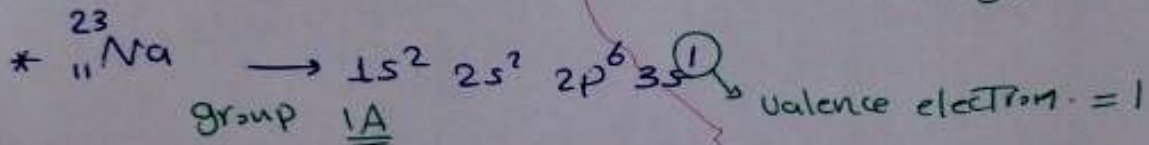 * ²³₁₁Na → 1s² 2s² 2p⁶ 3s¹ valence electron. = 1
group 1A